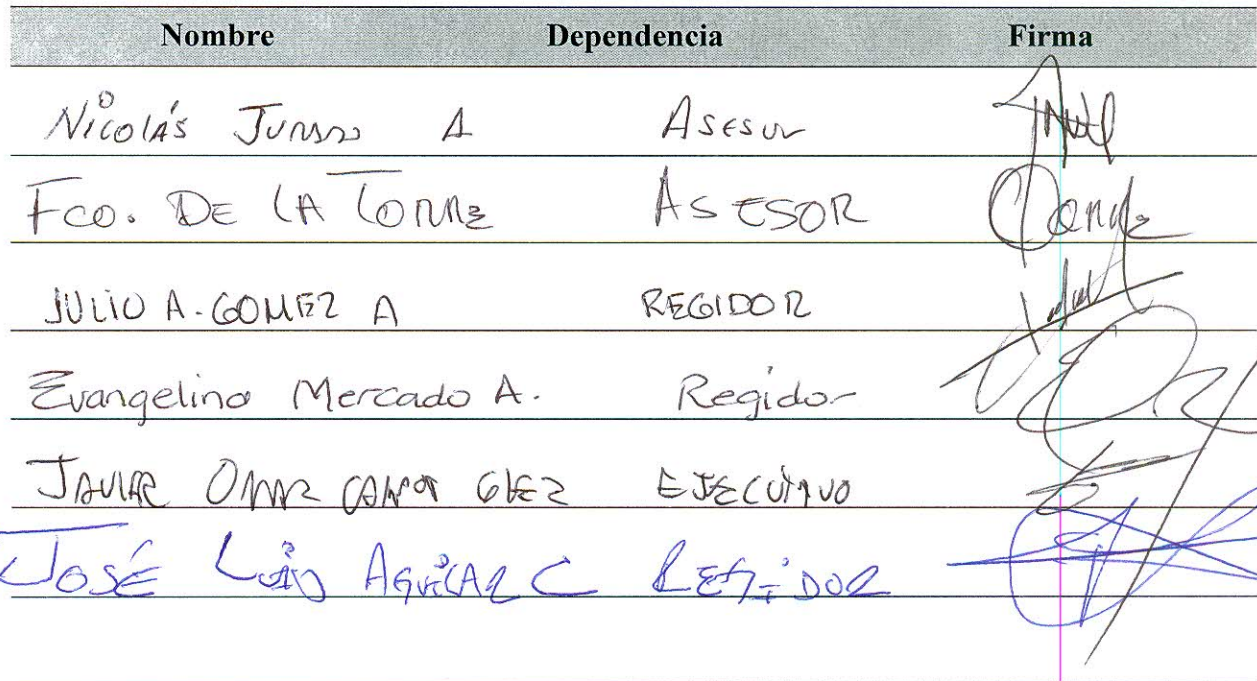 Nombre Dependencia Firma
Nicolás Jurado A Asesor
Fco. DE LA TORRE ASESOR
JULIO A. GOMEZ A REGIDOR
Evangelino Mercado A. Regidor
JAVIER OMAR GLEZ EJECUTIVO
JOSÉ LUIS AGUILAR C REGIDOR